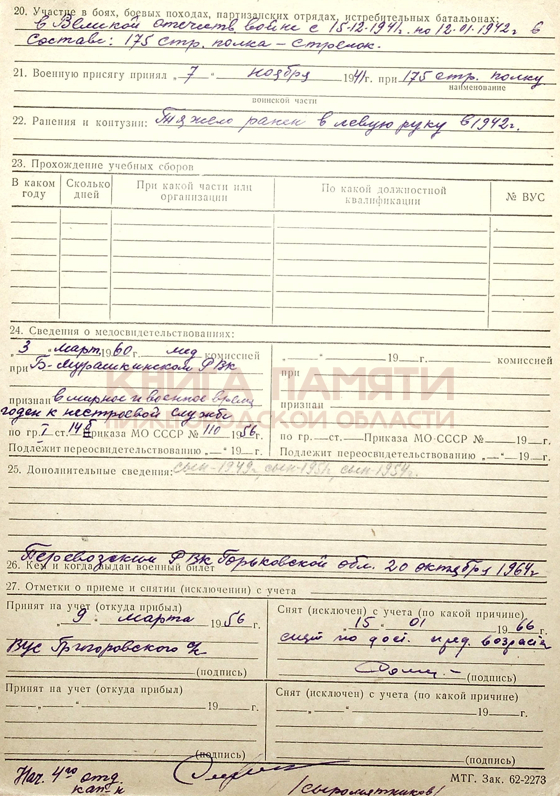 20. Участие в боях, боевых походах, партизанских отрядах, истребительных батальонах:
в Великой отечеств. войне с 15-12-1941г. по 12.01.1942 в
Составе: 175 стр. полка - стрелок.
21. Военную присягу принял „7" ноября 1941г. при 175 стр. полку
наименование
воинской части
22. Ранения и контузии: Тяжело ранен в левую руку в 1942г.
23. Прохождение учебных сборов
В каком году Сколько дней При какой части или организации По какой должностной квалификации № ВУС
24. Сведения о медосвидетельствованиях:
„3" март 1960 г. мед комиссией
при Б-Мурашкинском РВК
признан в мирное и военное время
годен к нестроевой службе
по гр. I ст. 14б Приказа МО СССР № 110 1956г.
Подлежит переосвидетельствованию „—" 19—г.
„—" 19—г. комиссией
при
признан
по гр.—ст.—Приказа МО СССР № 19—г.
Подлежит переосвидетельствованию „—" 19—г.
КНИГА ПАМЯТИ
НИЖЕГОРОДСКОЙ ОБЛАСТИ
25. Дополнительные сведения: сын-1949г, сын-1951г, сын-1954г.
Перевозским РВК Горьковской обл. 20 октября 1964г
26. Кем и когда выдан военный билет
27. Отметки о приеме и снятии (исключении) с учета
Принят на учет (откуда прибыл)
„9" марта 1956г.
ВУС Григоровского с/с
(подпись)
Снят (исключен) с учета (по какой причине)
„15" 01 1966г.
снят по дост. пред. возраста
(подпись)
Принят на учет (откуда прибыл)
„—" 19—г.
(подпись)
Снят (исключен) с учета (по какой причине)
„—" 19—г.
(подпись)
Нач. 4го отд.
кап-н
/Сыромятников/
МТГ. Зак. 62-2273